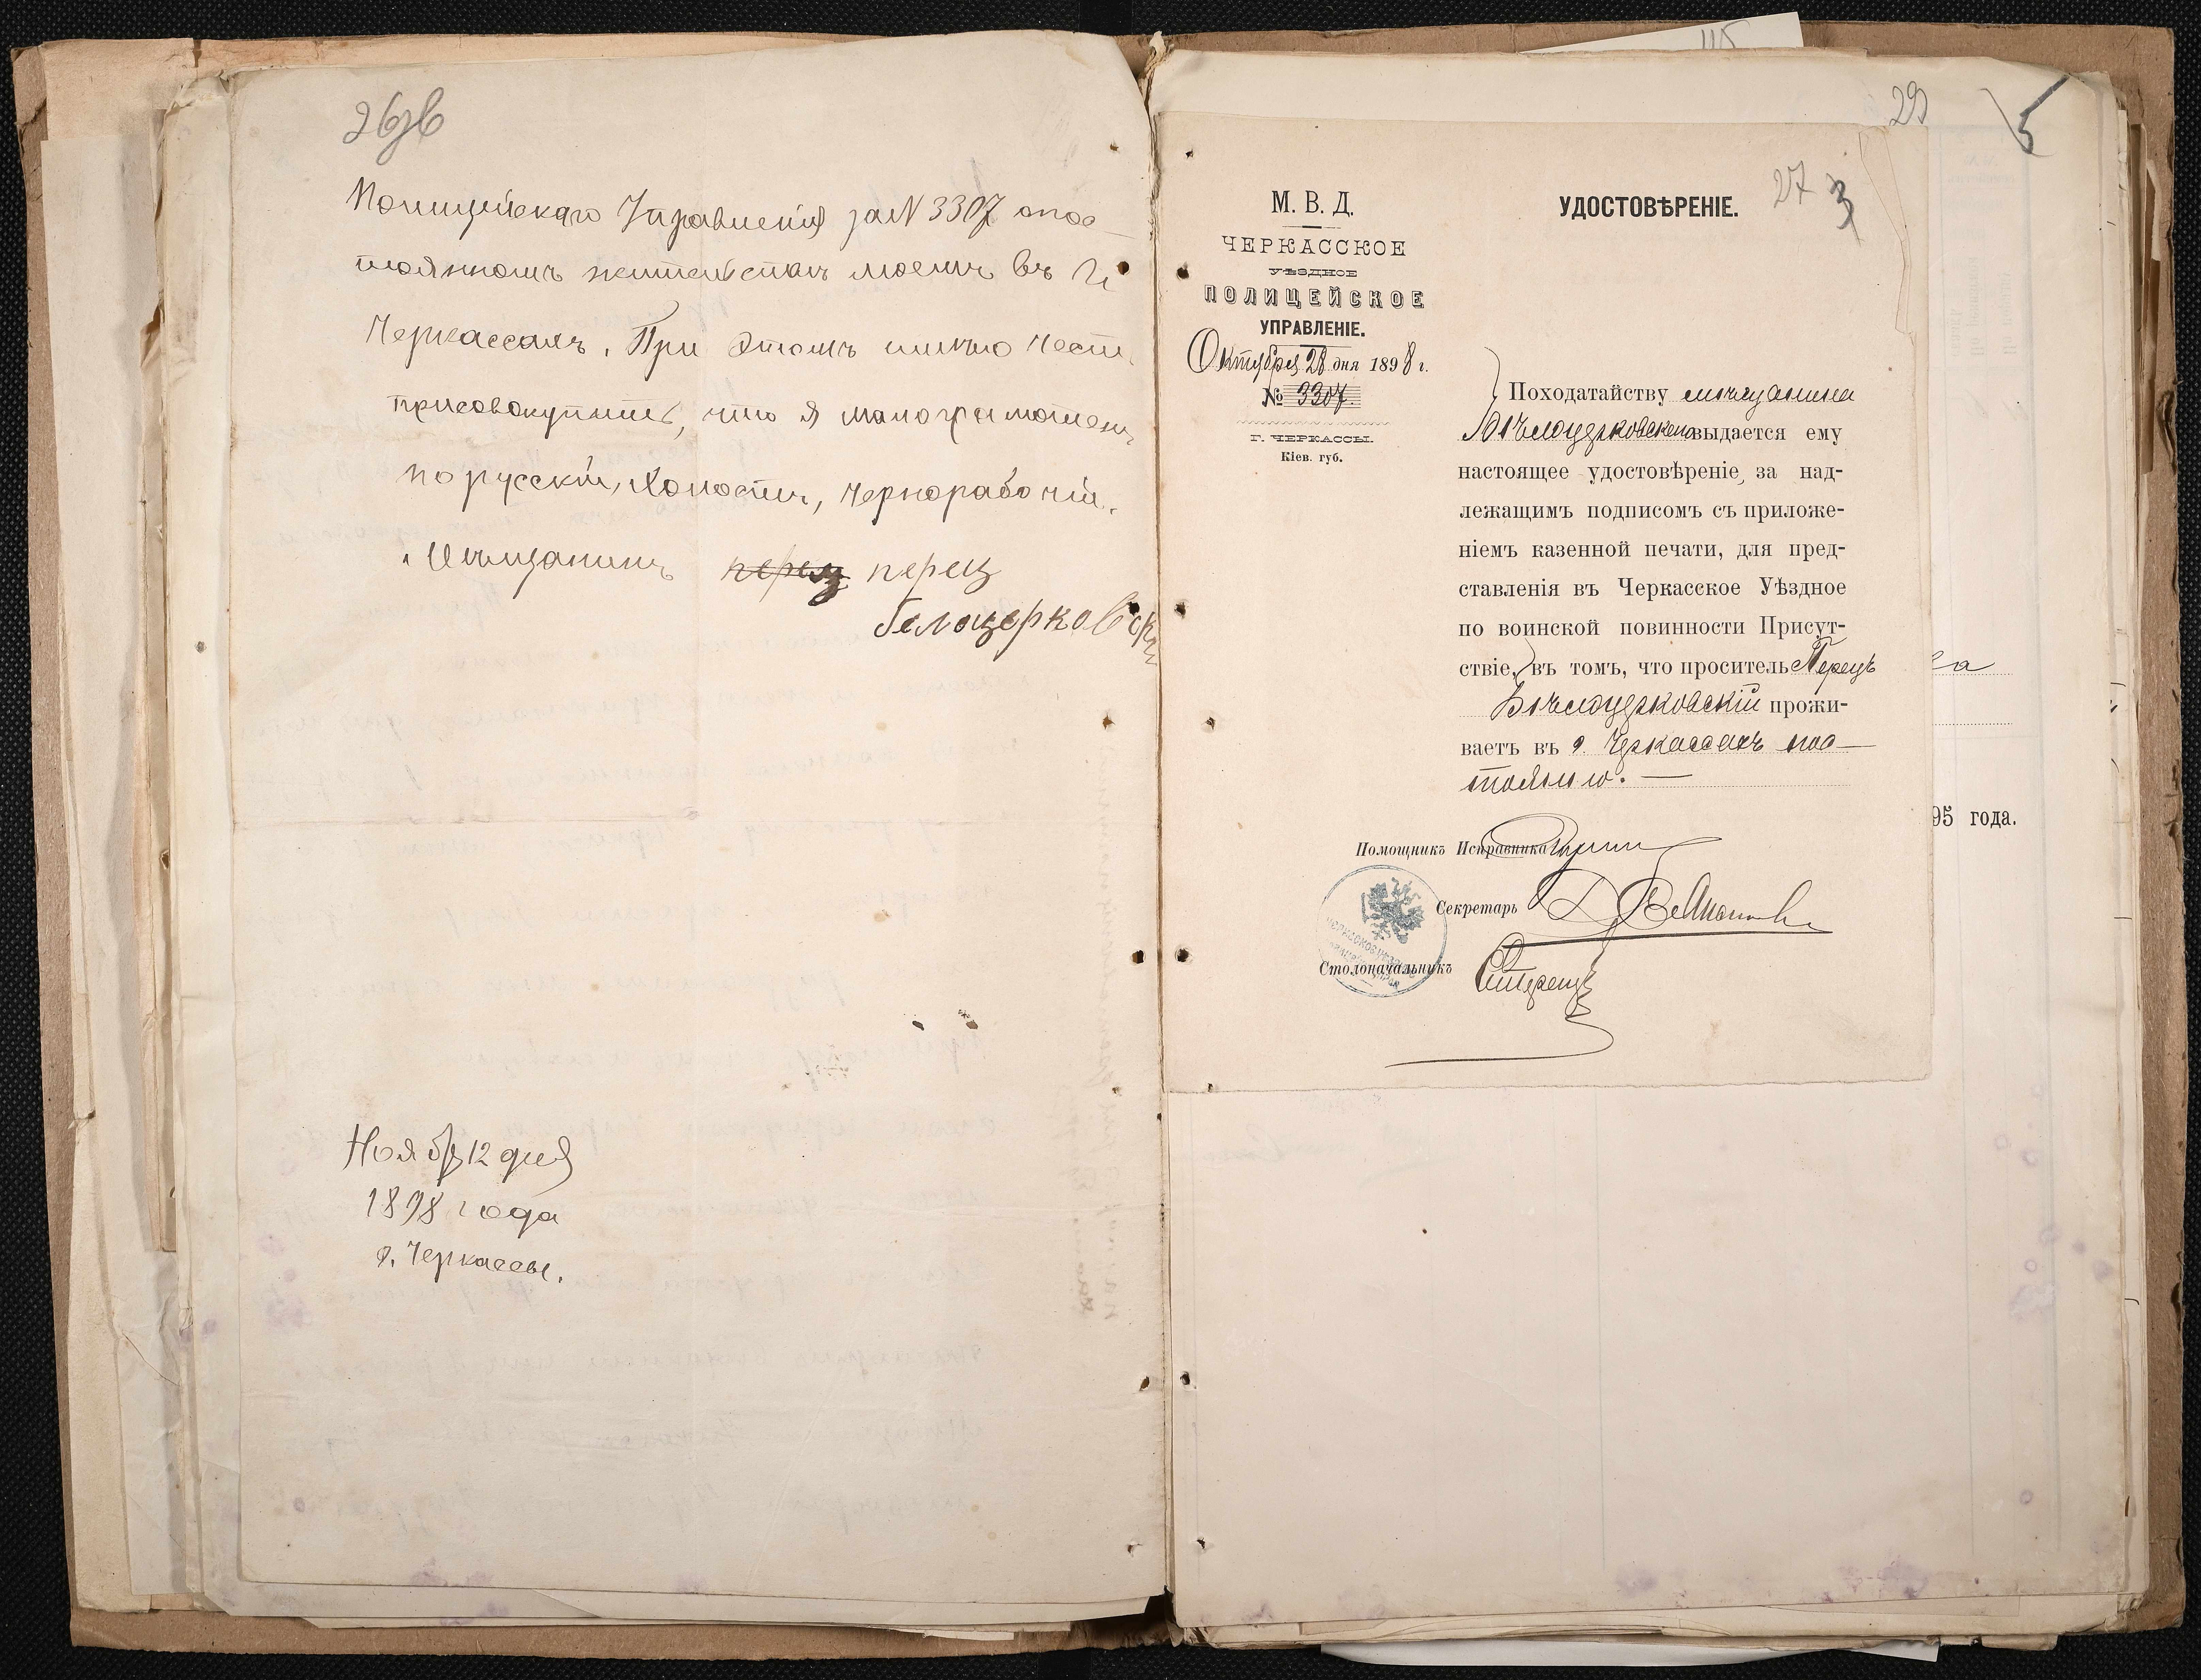 26об
Полицейскаго Управленія за N 3307 о пос-
тоянномъ жительствѣ моемъ въ г.
Черкассахъ. При этомъ имѣю честь
присовокупить, что я малограмотенъ
по русски, холостъ, чернорабочій.
Мѣщанинъ перец перец
белоцерковски
Ноября 12 дня
1898 года
г. Черкассы.
29
5
27 3
М. В. Д.
ЧЕРКАССКОЕ
УѢЗДНОЕ
ПОЛИЦЕЙСКОЕ
УПРАВЛЕНІЕ.
Октября 28 дня 1898 г.
№ 3307.
Г. ЧЕРКАССЫ.
Кіев. губ.
УДОСТОВѢРЕНІЕ.
Походатайству мѣщанина
Бѣлоцерковскаго выдается ему
настоящее удостовѣреніе, за над-
лежащимъ подписомъ съ приложе-
ніемъ казенной печати, для пред-
ставленія въ Черкасское Уѣздное
по воинской повинности Присут-
ствіе, въ томъ, что проситель Перецъ
Бѣлоцерковскій прожи-
ваетъ въ г. Черкассахъ пос-
тоянно.—
Помощникъ Исправника
Секретарь
Столоначальникъ
95 года.